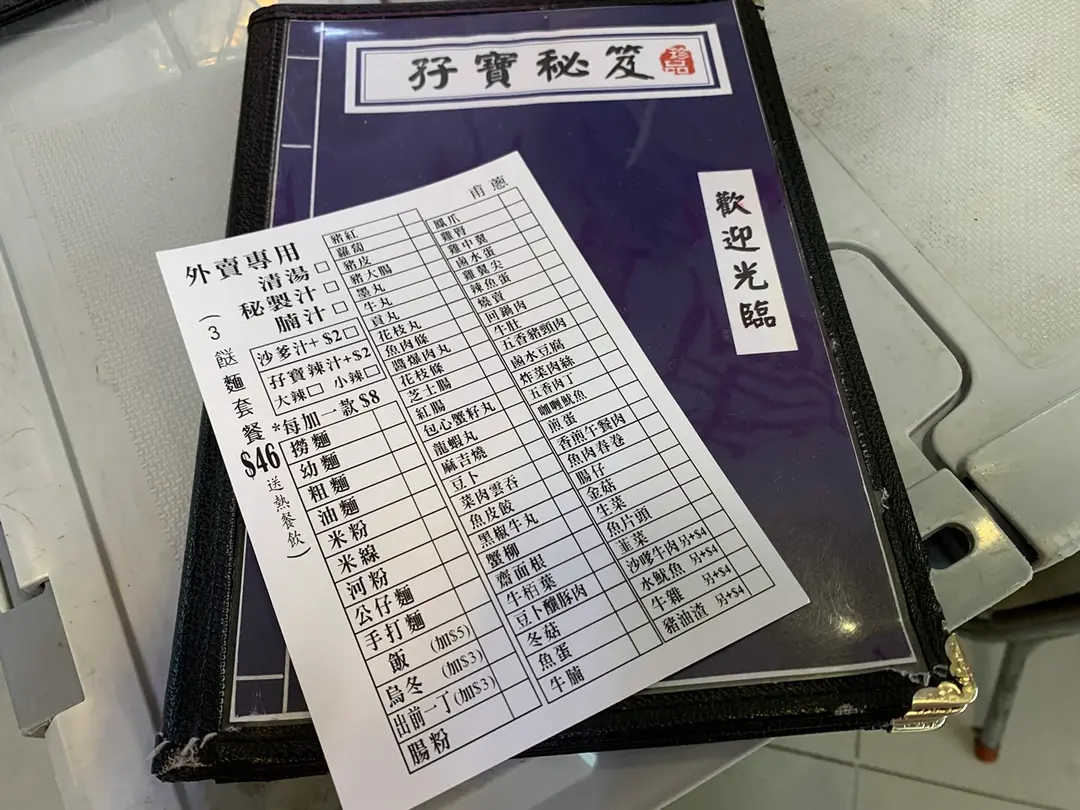 孖寶秘笈
珍品
歡迎光臨
走蔥
外賣專用
清湯 □
秘製汁 □
腩汁 □
沙爹汁+ $2□
孖寶辣汁+$2
大辣□ 小辣□
*每加一款$8
(3餸麵套餐$46送熱餐飲)
撈麵
幼麵
粗麵
油麵
米粉
米線
河粉
公仔麵
手打麵
飯 (加$5)
烏冬 (加$3)
出前一丁(加$3)
腸粉
豬紅
蘿蔔
豬皮
豬大腸
墨丸
牛丸
貢丸
花枝丸
魚肉條
醬爆肉丸
花枝條
芝士腸
紅腸
包心蟹籽丸
龍蝦丸
麻吉燒
豆卜
菜肉雲吞
魚皮餃
黑椒牛丸
蟹柳
齋面根
牛栢葉
豆卜釀豚肉
冬菇
魚蛋
牛腩
鳳爪
雞腎
雞中翼
鹵水蛋
雞翼尖
辣魚蛋
燒賣
回鍋肉
牛肚
五香豬頸肉
鹵水豆腐
炸菜肉絲
五香肉丁
咖喱魷魚
煎蛋
香煎午餐肉
魚肉春卷
腸仔
金菇
生菜
魚片頭
韮菜
沙嗲牛肉 另+$4
水魷魚 另+$4
牛雜 另+$4
豬油渣 另+$4